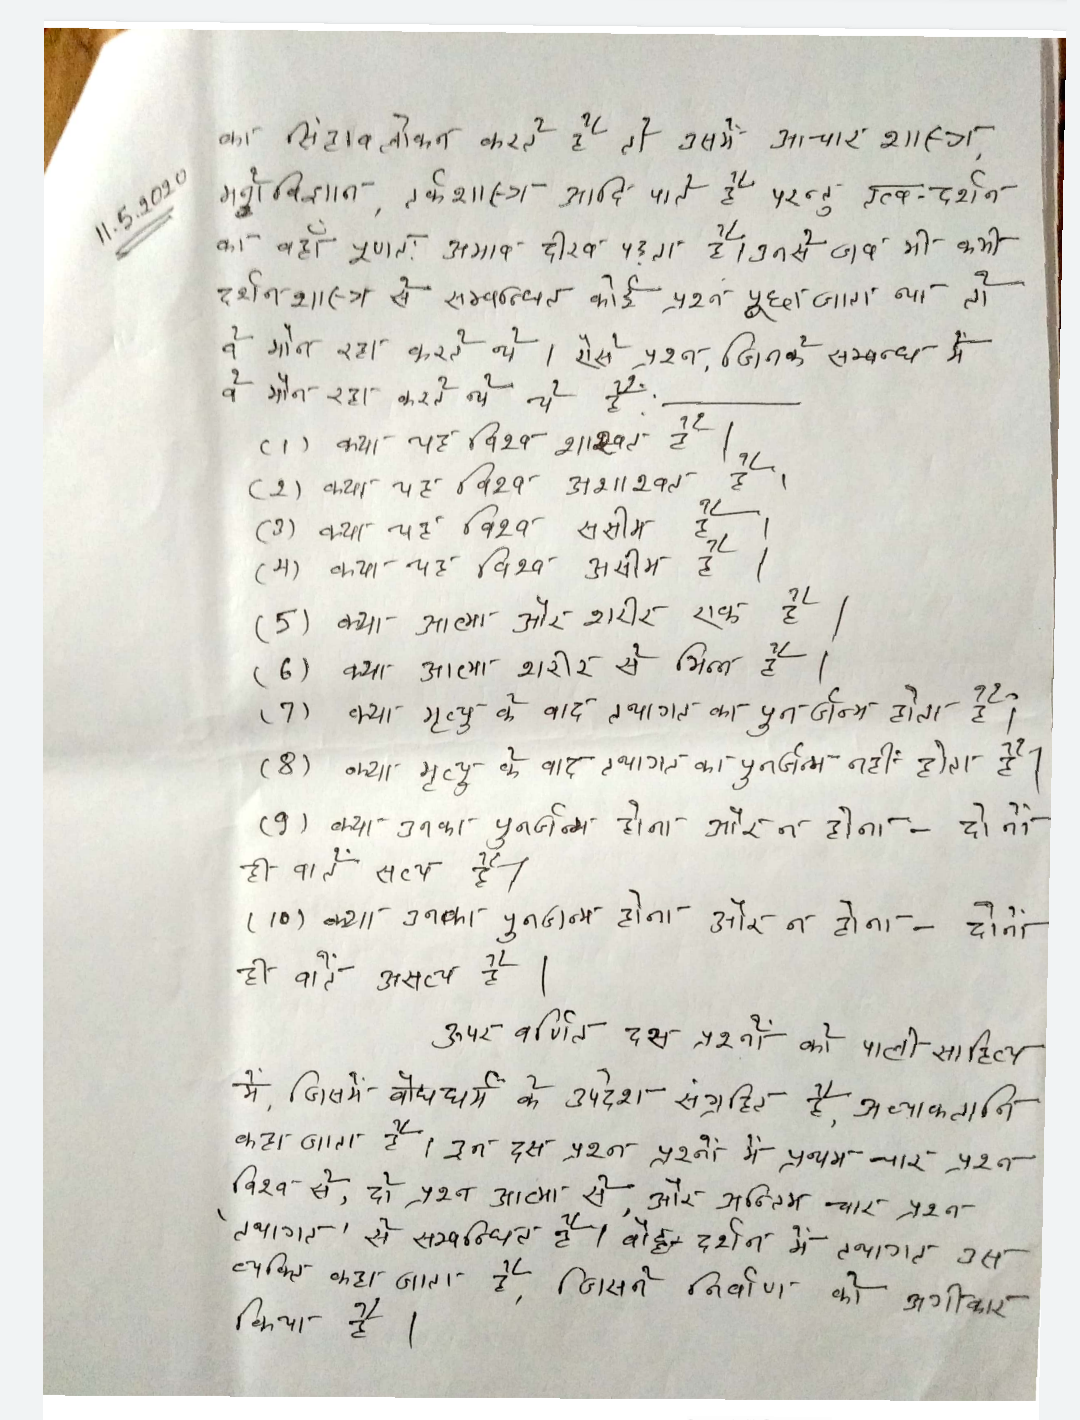 11.5.2020
का सिंहावलोकन करते हैं तो उसमें आचार शास्त्र,
मनोविज्ञान, तर्कशास्त्र आदि पाते हैं परन्तु तत्व-दर्शन
का वहाँ पूर्णत: अभाव दीख पड़ता है। उनसे जब भी कभी
दर्शनशास्त्र से सम्बन्धित कोई प्रश्न पूछा जाता था तो
वे मौन रहा करते थे। ऐसे प्रश्न, जिनके सम्बन्ध में
वे मौन रहा करते थे ये हैं:
(1) क्या यह विश्व शाश्वत है।
(2) क्या यह विश्व अशाश्वत है।
(3) क्या यह विश्व ससीम है।
(4) क्या यह विश्व असीम है।
(5) क्या आत्मा और शरीर एक है।
(6) क्या आत्मा शरीर से भिन्न है।
(7) क्या मृत्यु के बाद तथागत का पुनर्जन्म होता है।
(8) क्या मृत्यु के बाद तथागत का पुनर्जन्म नहीं होता है।
(9) क्या उनका पुनर्जन्म होना और न होना - दोनों
ही बातें सत्य हैं।
(10) क्या उनका पुनर्जन्म होना और न होना - दोनों
ही बातें असत्य हैं।
ऊपर वर्णित दस प्रश्नों को पाली साहित्य
में, जिसमें बौद्धधर्म के उपदेश संग्रहित हैं, अव्याकतानि
कहा जाता है। इन दस प्रश्न प्रश्नों में प्रथम चार प्रश्न
विश्व से, दो प्रश्न आत्मा से, और अन्तिम चार प्रश्न
'तथागत' से सम्बन्धित हैं। बौद्ध दर्शन में तथागत उस
व्यक्ति कहा जाता है, जिसने निर्वाण को अंगीकार
किया है।